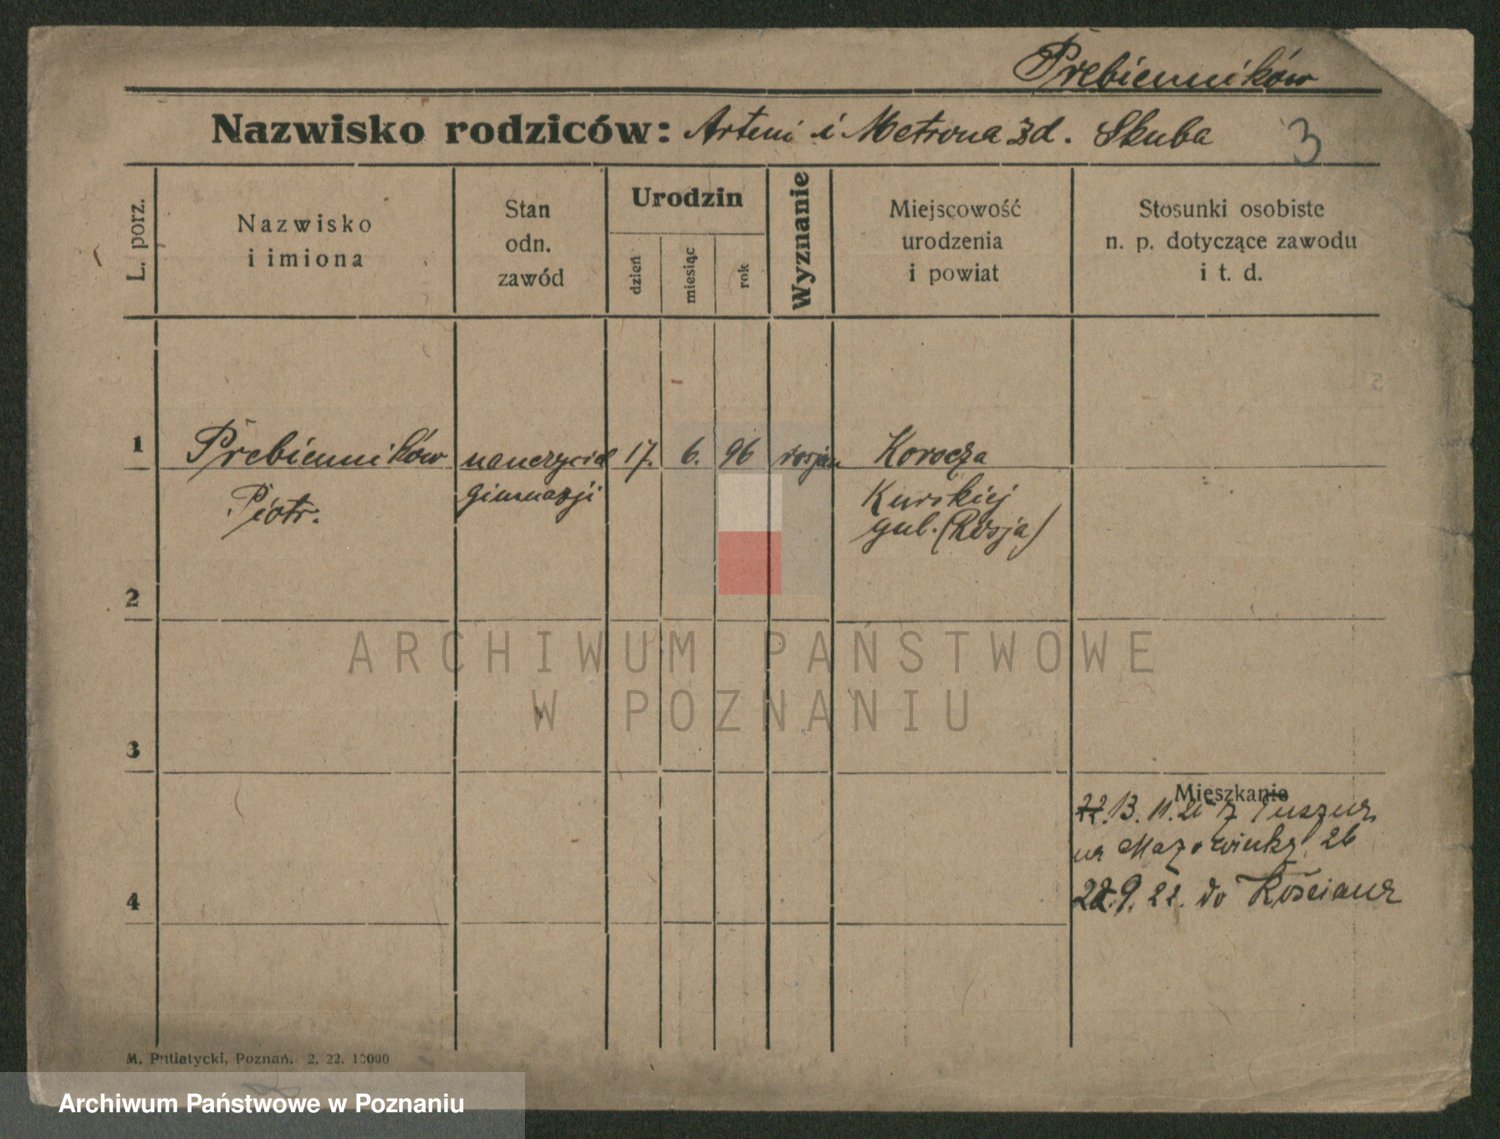 Prebienników
Nazwisko rodziców: Artemi i Metrona zd. Skuba
3
L. porz.
Nazwisko
i imiona
Stan
odn.
zawód
Urodzin
dzień
miesiąc
rok
Wyznanie
Miejscowość
urodzenia
i powiat
Stosunki osobiste
n. p. dotyczące zawodu
i t. d.
1
Prebienników nauczyciel 17. 6. 96 rosjan Korocza
Piotr. gimnazji Kurskiej
gub. (Rosja)
2
3
Mieszkanie
22. 13. 11. 21 z
na 26
4
28. 9. 22. do Kościana
M. Putiatycki, Poznań. 2. 22. 10000
ARCHIWUM PAŃSTWOWE
W POZNANIU
Archiwum Państwowe w Poznaniu